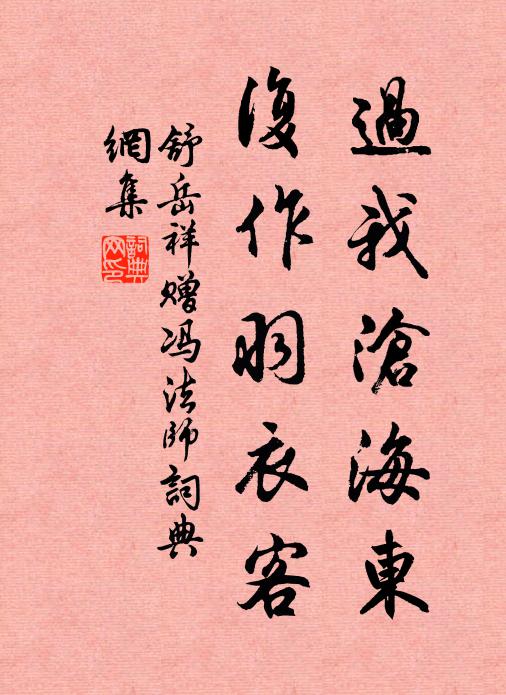 過我滄海東
復作羽衣客
舒岳祥赠冯法师詞典
網集
詞典
网印